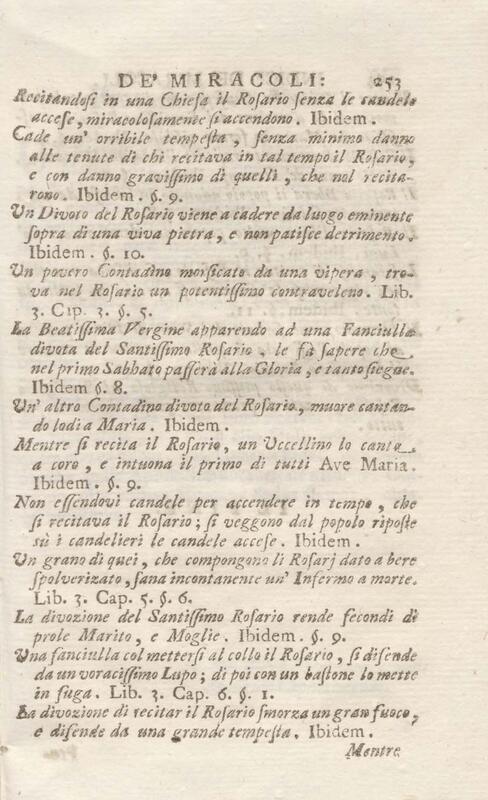 DE' MIRACOLI: 253
Recitandosi in una Chiesa il Rosario senza le candele
accese, miracolosamente si accendono. Ibidem.
Cade un' orribile tempesta, senza minimo danno
alle tenute di chi recitava in tal tempo il Rosario,
e con danno gravissimo di quelli, che nol recita-
rono. Ibidem. §. 9.
Un Divoto del Rosario viene a cadere da luogo eminente
sopra di una viva pietra, e non patisce detrimento.
Ibidem. §. 10.
Un povero Contadino morsicato da una vipera, tro-
va nel Rosario un potentissimo contraveleno. Lib.
3. Cip. 3. §. 5.
La Beatissima Vergine apparendo ad una Fanciulla
divota del Santissimo Rosario, le fà sapere che
nel primo Sabbato passerà alla Gloria, e tanto siegue.
Ibidem §. 8.
Un' altro Contadino divoto del Rosario, muore cantan-
do lodi a Maria. Ibidem.
Mentre si recita il Rosario, un Uccellino lo canta
a coro, e intuona il primo di tutti Ave Maria.
Ibidem. §. 9.
Non essendovi candele per accendere in tempo, che
si recitava il Rosario; si veggono dal popolo riposte
sù i candelieri le candele accese. Ibidem.
Un grano di quei, che compongono li Rosarj dato a bere
spolverizato, sana incontanente un' Infermo a morte.
Lib. 3. Cap. 5. §. 6.
La divozione del Santissimo Rosario rende fecondi di
prole Marito, e Moglie. Ibidem. §. 9.
Una fanciulla col mettersi al collo il Rosario, si difende
da un voracissimo Lupo; di poi con un bastone lo mette
in fuga. Lib. 3. Cap. 6. §. 1.
La divozione di recitar il Rosario smorza un gran fuoco,
e difende da una grande tempesta. Ibidem.
Mentre